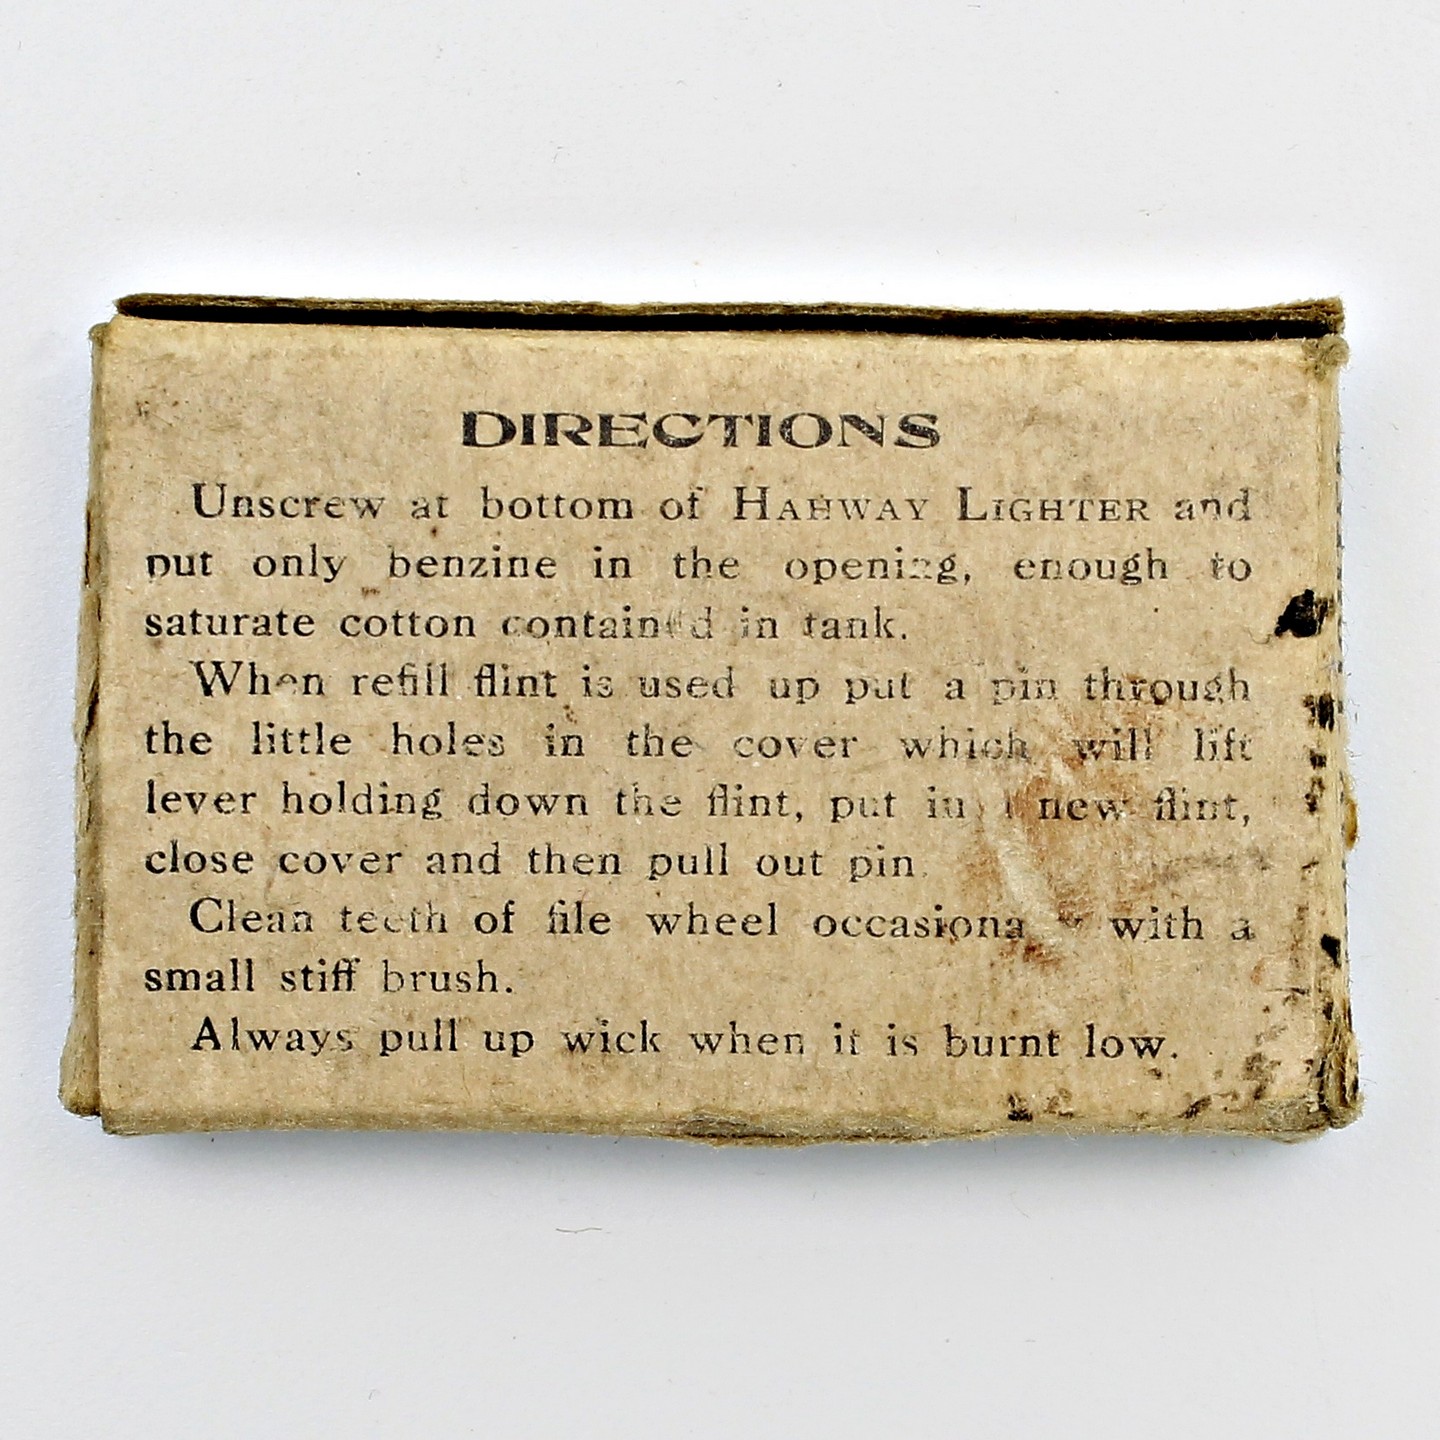 DIRECTIONS
Unscrew at bottom of HAHWAY LIGHTER and
put only benzine in the opening, enough to
saturate cotton contained in tank.
When refill flint is used up put a pin through
the little holes in the cover which will lift
lever holding down the flint, put in a new flint,
close cover and then pull out pin.
Clean teeth of file wheel occasionally with a
small stiff brush.
Always pull up wick when it is burnt low.